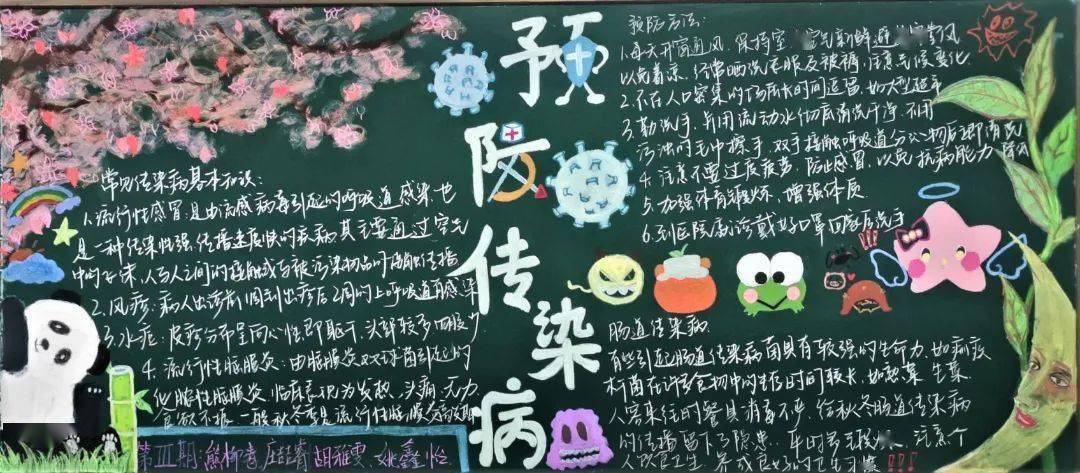 预防传染病
常见传染病基本知识:
1.流行性感冒,是由流感病毒引起的呼吸道感染.也
是一种传染性强、传播速度快的疾病.其主要通过空气
中的飞沫、人与人之间的接触或与被污染物品的接触传播
2.风疹:病人出疹前1周到出疹后2周的上呼吸道有感染
3.水痘:皮疹分布呈向心性,即躯干、头部较多四肢少
4.流行性脑膜炎:由脑膜炎双球菌引起的
化脓性脑膜炎.临床表现为发热、头痛、无力
食欲不振.一般秋冬季是流行性脑膜炎高发期
第三期:熊 胡雅雯、姚鑫怡
预防方法:
1.每天开窗通风,保持室 空气新鲜避 穿堂风
以免着凉.经常晒洗衣服及被褥.注意气候变化
2.不在人口密集的场所长时间逗留.如大型超市
3.勤洗手,并用流动水彻底清洗干净.不用
污浊的毛巾擦手.双手接触呼吸道分泌物后立即清洗
4.注意不要过度疲劳,防止感冒,以免抗病能力下降
5.加强体育锻炼,增强体质
6.到医院就诊戴好口罩回家后洗手
肠道传染病
有些引起肠道传染病菌具有较强的生命力.如痢疾
杆菌在 食物中的生存时间较长,如 菜 生菜.
人客来往的餐具消毒不严,给秋冬肠道传染病
的传播留下了隐患. 注意个
人饮食卫生 养成良好的卫生习惯!!!